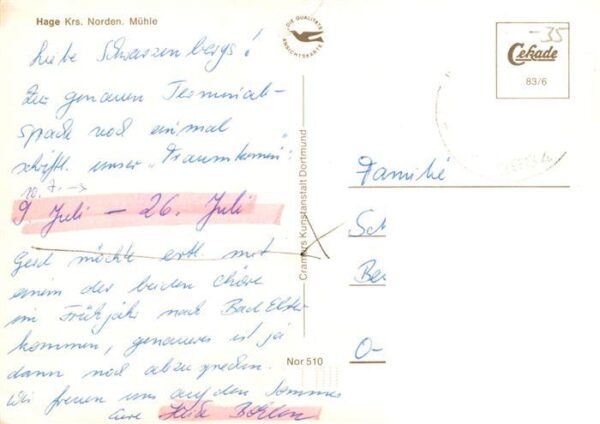 Hage Krs. Norden. Mühle
Liebe Schwarzenbergs!
Zur genauen Terminab-
sprache noch einmal
schriftl. unser „Traumkommen“:
10. 7. →
9 Juli — 26. Juli
Gerd möchte evtl. mit
einem der beiden Chöre
im Frühjahr nach Bad Elster
kommen, genaueres ist ja
dann noch abzusprechen.
Wir freuen uns auf den Sommer
Eure
DIE QUALITÄTS
ANSICHTSKARTE
Cramers Kunstanstalt Dortmund
Nor 510
-35
Cekade
83/6
Familie
Sch
Be
O-